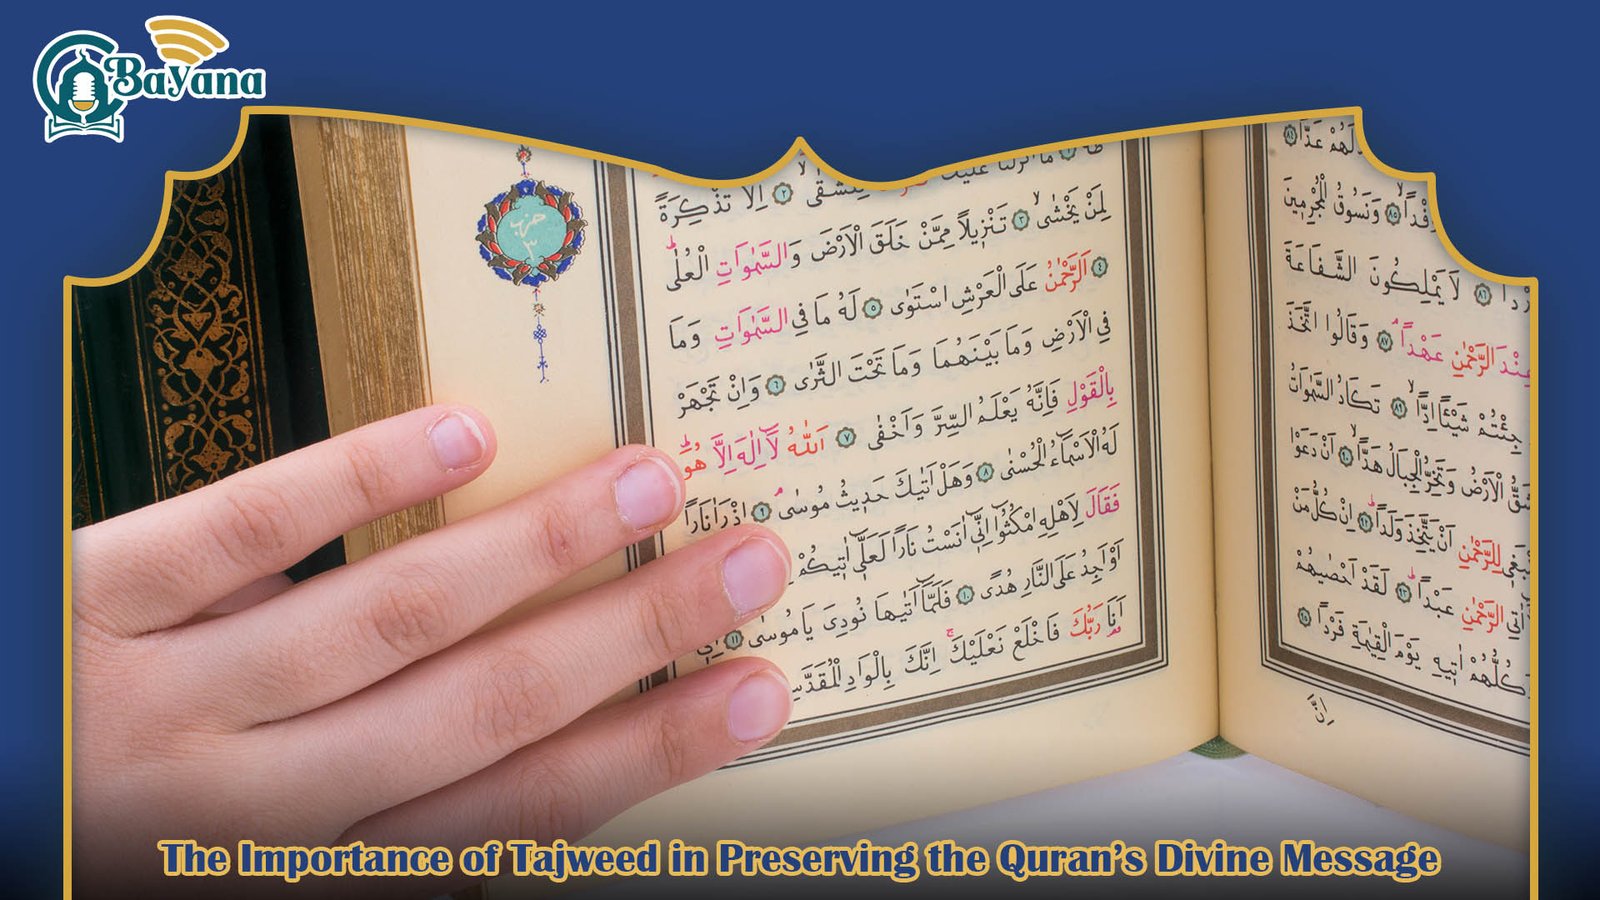 Bayana
لَهُمْ عَدًّا ٨٤
وَنَسُوقُ الْمُجْرِمِينَ ٨٥
٨٦ لَا يَمْلِكُونَ الشَّفَاعَةَ
عِنْدَ الرَّحْمٰنِ عَهْدًا ٨٧ وَقَالُوا اتَّخَذَ
جِئْتُمْ شَيْـًٔا اِدًّا ٨٩ تَكَادُ السَّمٰوَاتُ
الْاَرْضُ وَتَخِرُّ الْجِبَالُ هَدًّا ٩٠ اَنْ دَعَوْا
لِلرَّحْمٰنِ اَنْ يَتَّخِذَ وَلَدًا ٩٢ اِنْ كُلُّ مَنْ
الرَّحْمٰنِ عَبْدًا ٩٣ لَقَدْ اَحْصٰيهُمْ
وَكُلُّهُمْ اٰتِيهِ يَوْمَ الْقِيٰمَةِ فَرْدًا ٩٥
اِنَّ
حزب
٣
٢ اِلَّا تَذْكِرَةً
لِمَنْ يَخْشٰى ٣ تَنْزِيلًا مِمَّنْ خَلَقَ الْاَرْضَ وَالسَّمٰوَاتِ الْعُلٰى
٤ اَلرَّحْمٰنُ عَلَى الْعَرْشِ اسْتَوٰى ٥ لَهُ مَا فِي السَّمٰوَاتِ وَمَا
فِي الْاَرْضِ وَمَا بَيْنَهُمَا وَمَا تَحْتَ الثَّرٰى ٦ وَاِنْ تَجْهَرْ
بِالْقَوْلِ فَاِنَّهُ يَعْلَمُ السِّرَّ وَاَخْفٰى ٧ اَللّٰهُ لَا اِلٰهَ اِلَّا هُوَ
لَهُ الْاَسْمَاءُ الْحُسْنٰى ٨ وَهَلْ اَتٰيكَ حَدِيثُ مُوسٰى ٩ اِذْ رَاٰ نَارًا
فَقَالَ لِاَهْلِهِ امْكُثُوا اِنِّي اٰنَسْتُ نَارًا لَعَلِّي اٰتِيكُمْ
اَوْ اَجِدُ عَلَى النَّارِ هُدًى ١٠ فَلَمَّا اَتٰيهَا نُودِيَ يَا مُوسٰى ١١ اِنِّي
اَنَا رَبُّكَ فَاخْلَعْ نَعْلَيْكَ اِنَّكَ بِالْوَادِ الْمُقَدَّسِ
The Importance of Tajweed in Preserving the Quran's Divine Message